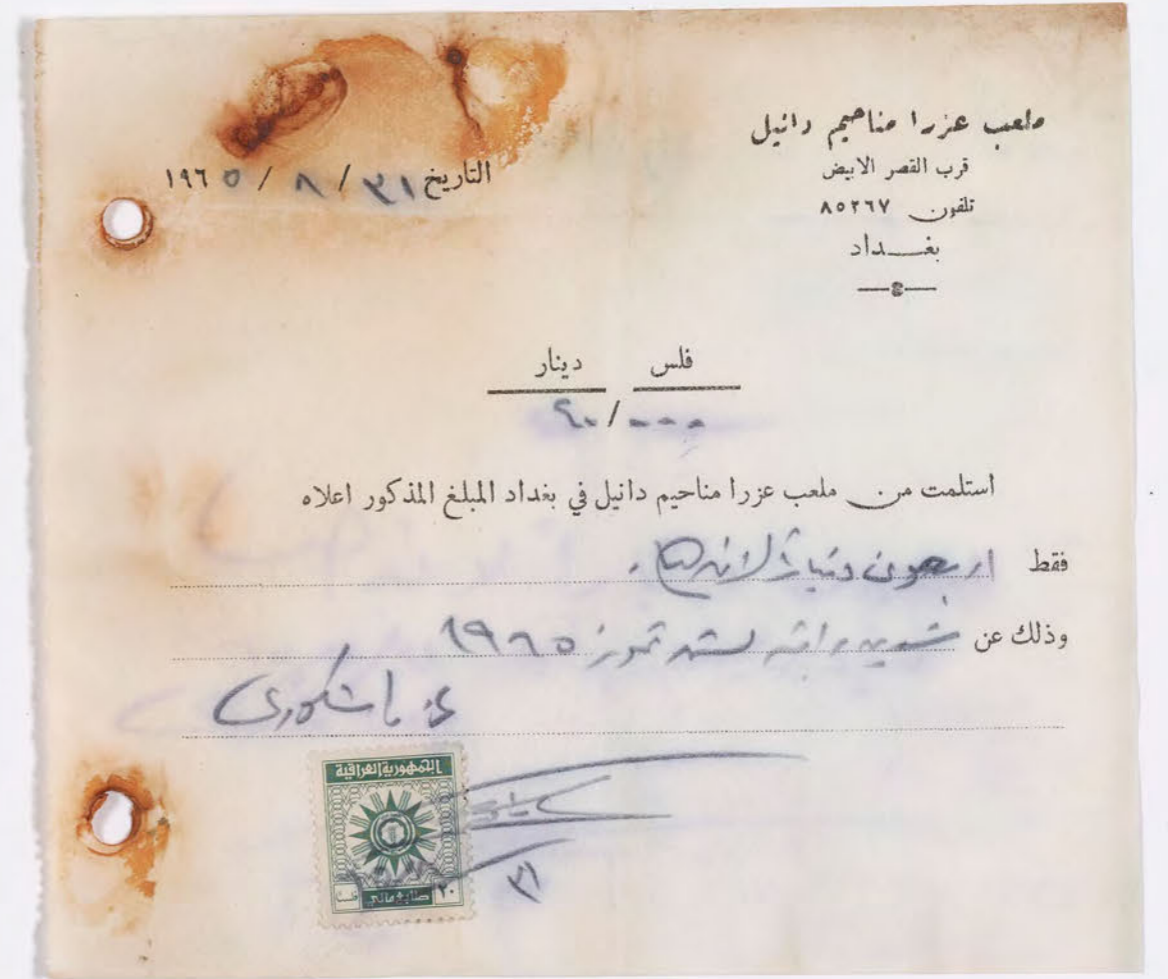 ملعب عزرا مناحيم دانيل
قرب القصر الابيض
تلفون ٨٥٢٦٧
بغداد
التاريخ ٣١ / ٨ / ١٩٦٥
فلس دينار
٤٠/٠٠٠
استلمت من ملعب عزرا مناحيم دانيل في بغداد المبلغ المذكور اعلاه
فقط اربعون دينار
وذلك عن لشهر تموز ١٩٦٥
الجمهورية العراقية
٣١
٢٠ طابع مالي